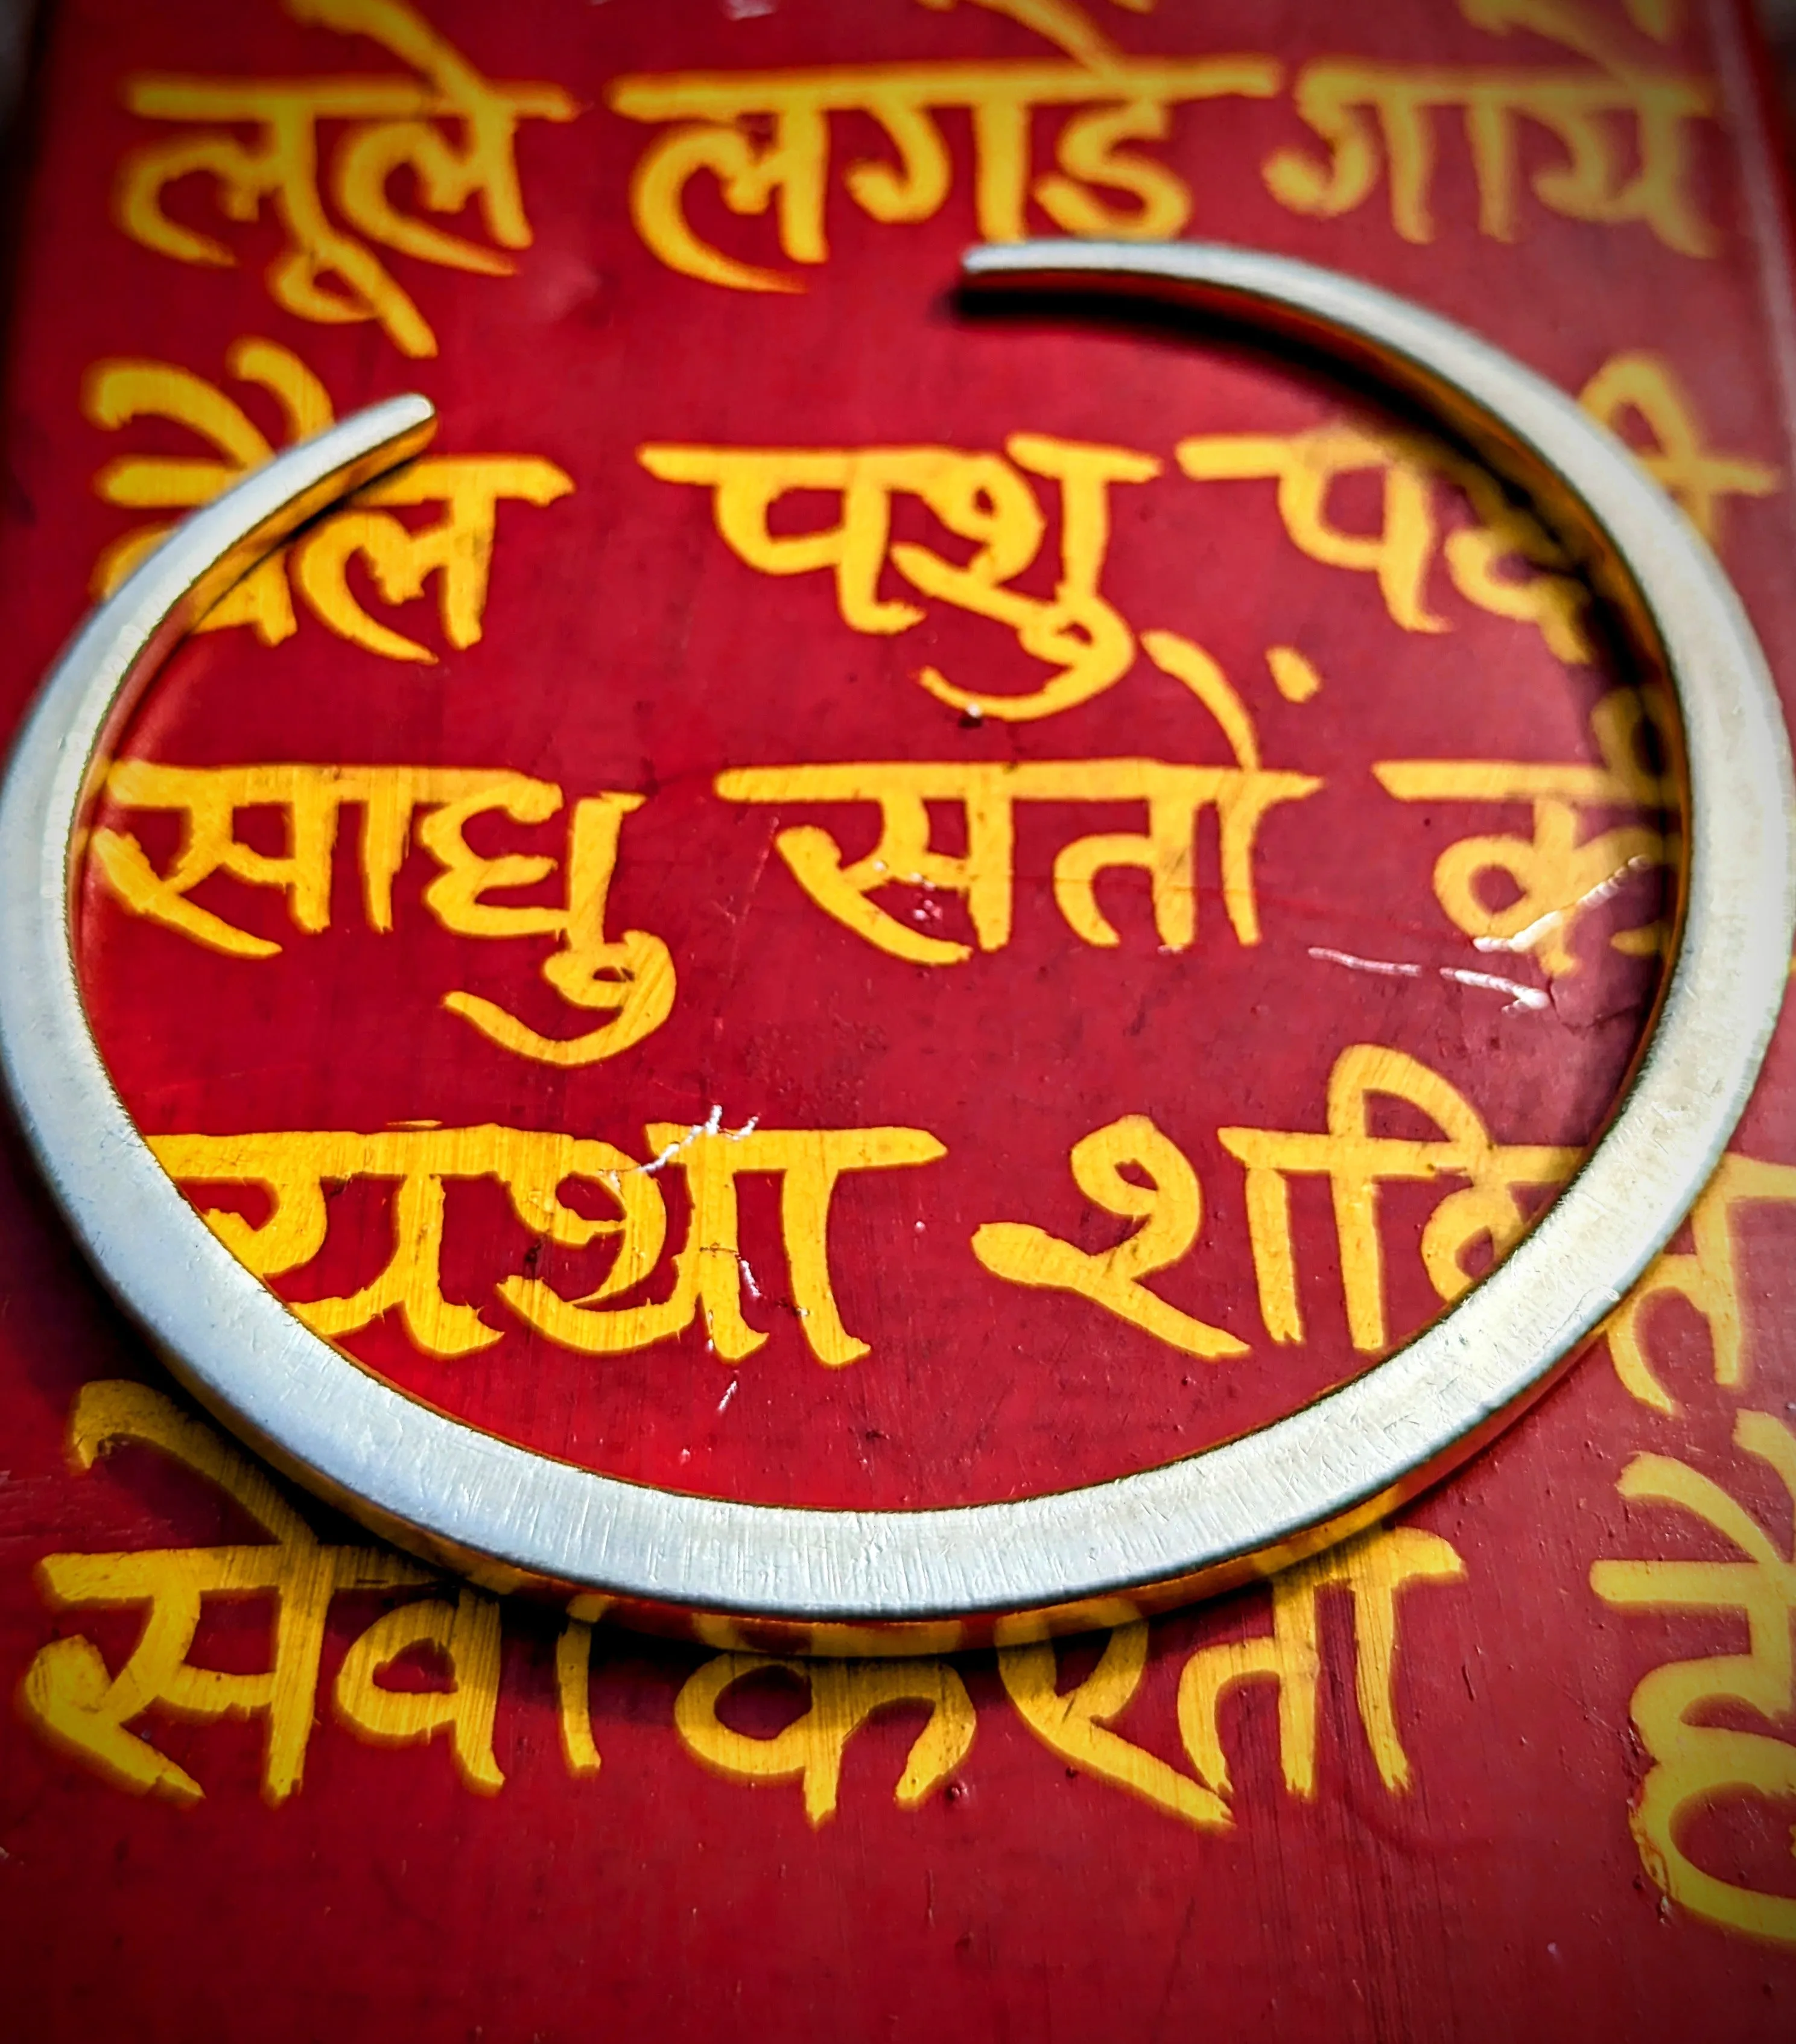 लूले लगडे गाये
बैल पशु पक्षी
साधु सतों की
यथा शक्ति
सेवा करता है